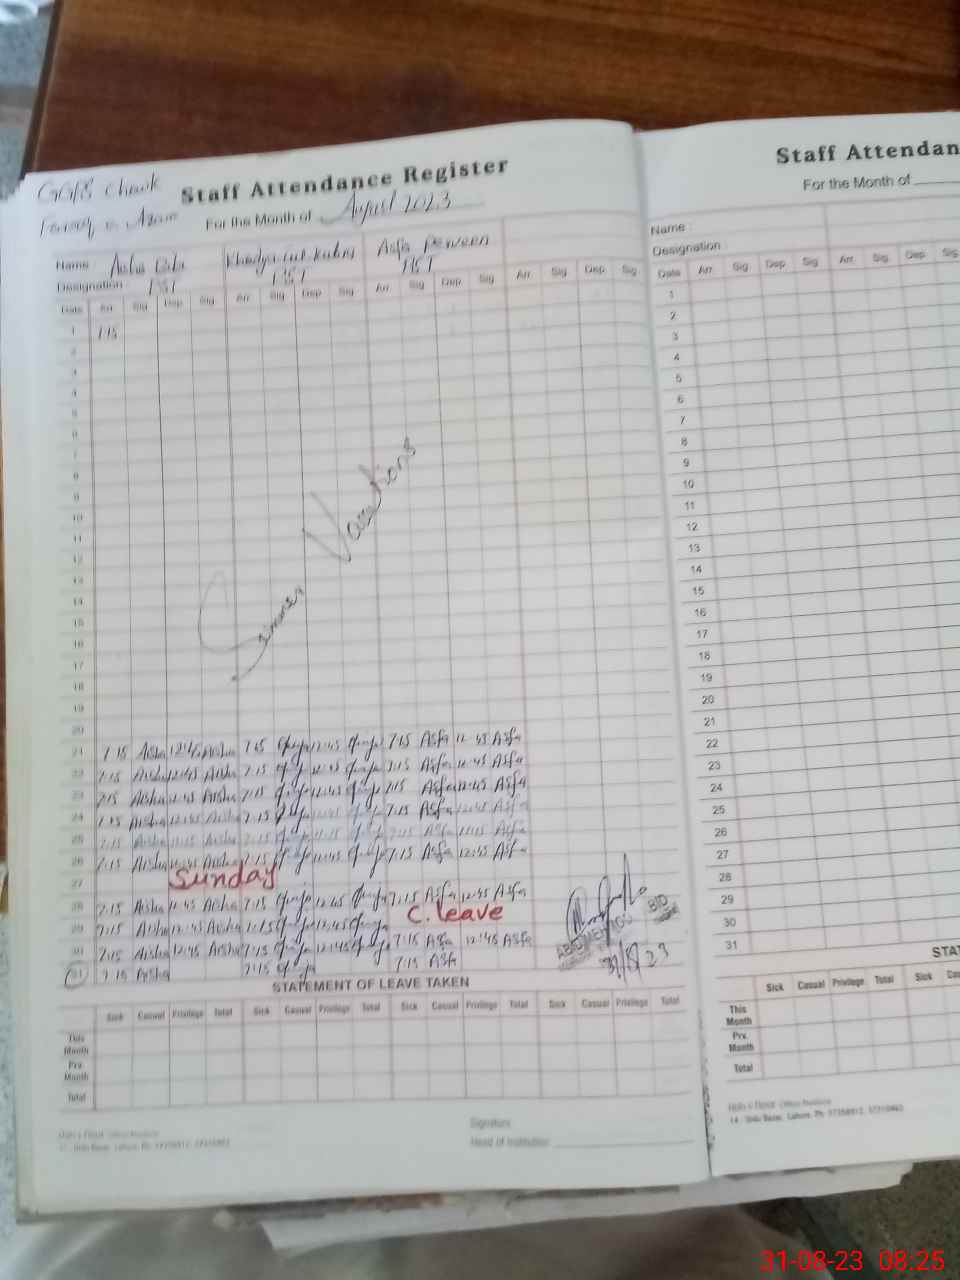 GGPS Chowk
Staff Attendance Register
For the Month of August 2023
Name : Aisha
Designation PST PST PST
Date Arr Sig Dep Sig Arr Sig Dep Sig Arr Sig Dep Sig Arr Sig Dep Sig
1
2
3
4
5
6
7
8
9
10
11
12
13
14
15
16
17
18
19
20
Summer Vacations
21 7:15 Aisha 12:45 Aisha 7:15 12:45 7:15 Asfa 12:45 Asfa
22 7:15 Aisha 12:45 Aisha 7:15 12:45 7:15 Asfa 12:45 Asfa
23 7:15 Aisha 12:45 Aisha 7:15 12:45 7:15 Asfa 12:45 Asfa
24 7:15 Aisha 12:45 Aisha 7:15 12:45 7:15 Asfa 12:45 Asfa
25 7:15 Aisha 11:15 Aisha 7:15 11:15 7:15 Asfa 11:15 Asfa
26 7:15 Aisha 12:45 Aisha 7:15 12:45 7:15 Asfa 12:45 Asfa
27 Sunday
28 7:15 Aisha 12:45 Aisha 7:15 12:45 7:15 Asfa 12:45 Asfa
29 7:15 Aisha 12:45 Aisha 7:15 12:45 C. leave
30 7:15 Aisha 12:45 Aisha 7:15 12:45 7:15 Asfa 12:45 Asfa
31 7:15 Aisha 7:15 7:15 Asfa
31/8/23
STATEMENT OF LEAVE TAKEN
Sick Casual Privilege Total Sick Casual Privilege Total Sick Casual Privilege Total Sick Casual Privilege Total
This Month
Prv. Month
Total
Signature
Head of Institution
Staff Attendan
For the Month of
Name :
Designation
Date Arr Sig Dep Sig Arr Sig Dep Sig
1
2
3
4
5
6
7
8
9
10
11
12
13
14
15
16
17
18
19
20
21
22
23
24
25
26
27
28
29
30
31
STAT
Sick Casual Privilege Total Sick
This Month
Prv. Month
Total
31-08-23 08:25